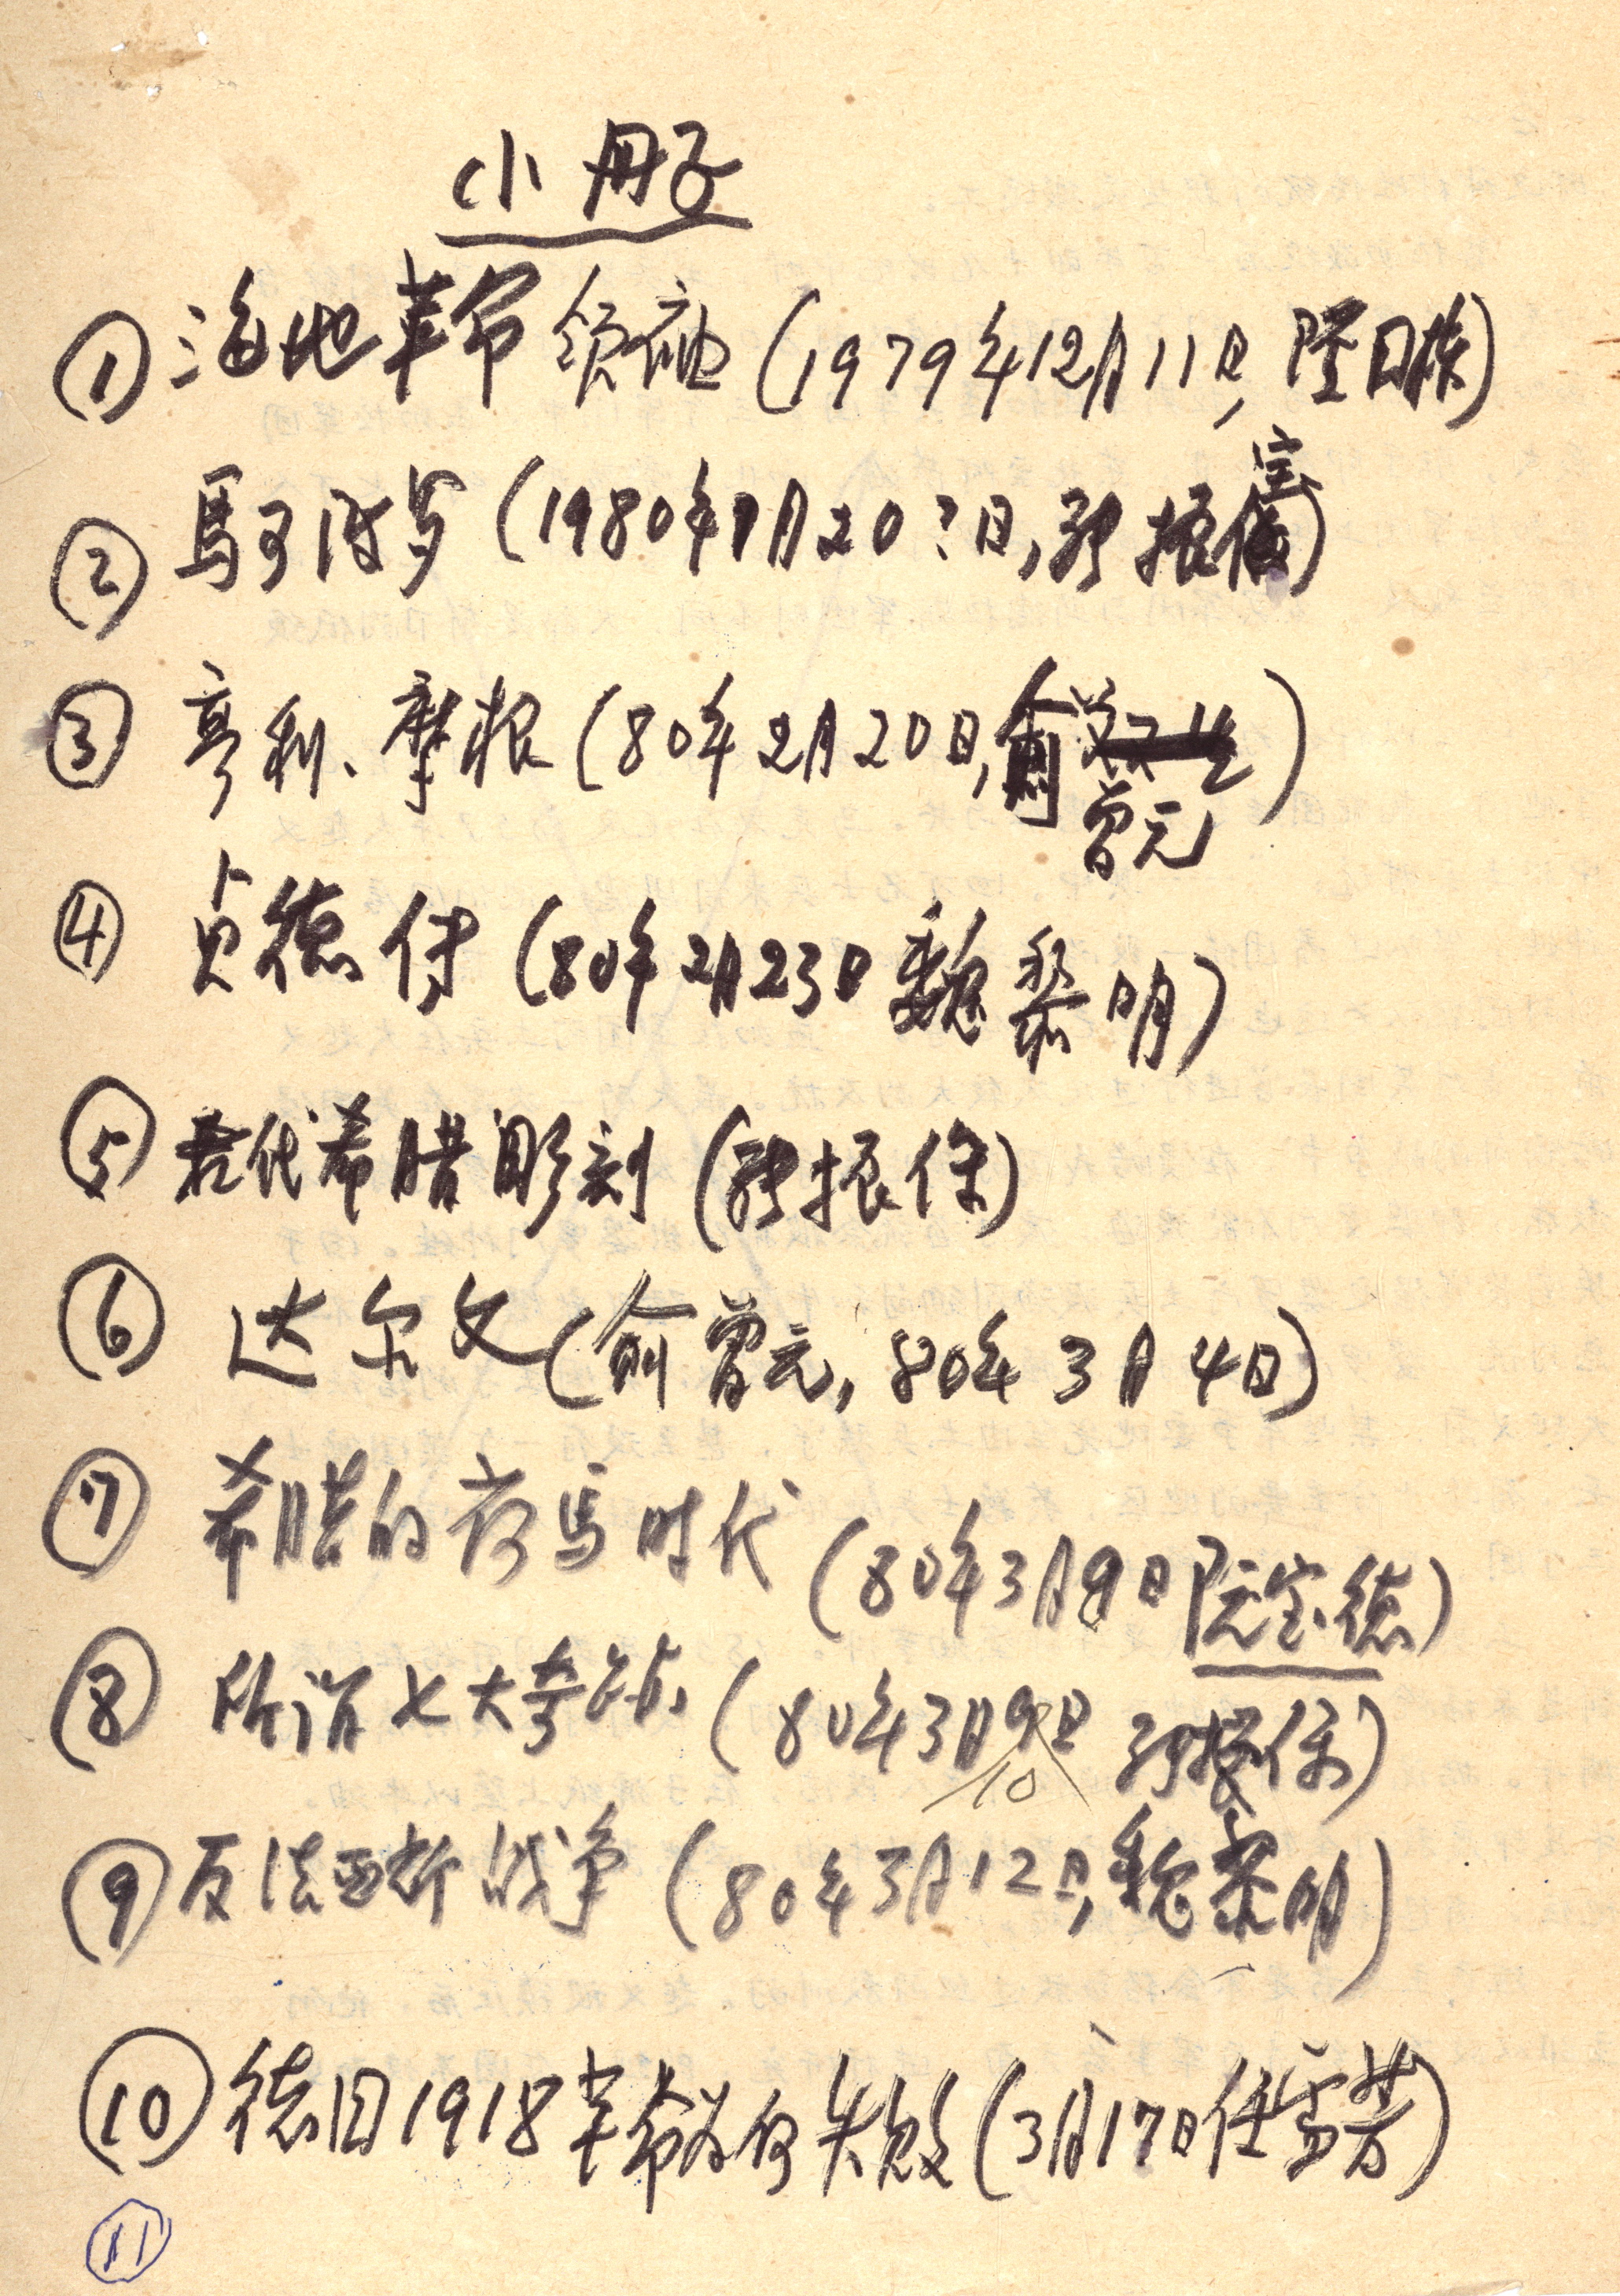 小册子
① 海地革命领袖 (1979年12月11日, 陆日林)
② 馬可波罗 (1980年1月20?日, 张振保)
③ 亨利、摩根 (80年2月20日, 俞曾元)
④ 贞德传 (80年2月23日 魏黎明)
⑤ 古代希腊彫刻 (张振保)
⑥ 达尔文 (俞曾元, 80年3月4日)
⑦ 希腊的荷馬时代 (80年3月9日 阮宝德)
⑧ 所谓七大奇迹 (80年3月10日 张振保)
⑨ 反法西斯战争 (80年3月12日, 魏黎明)
⑩ 德国1918革命为何失败 (3月17日 任雪芳)
⑪